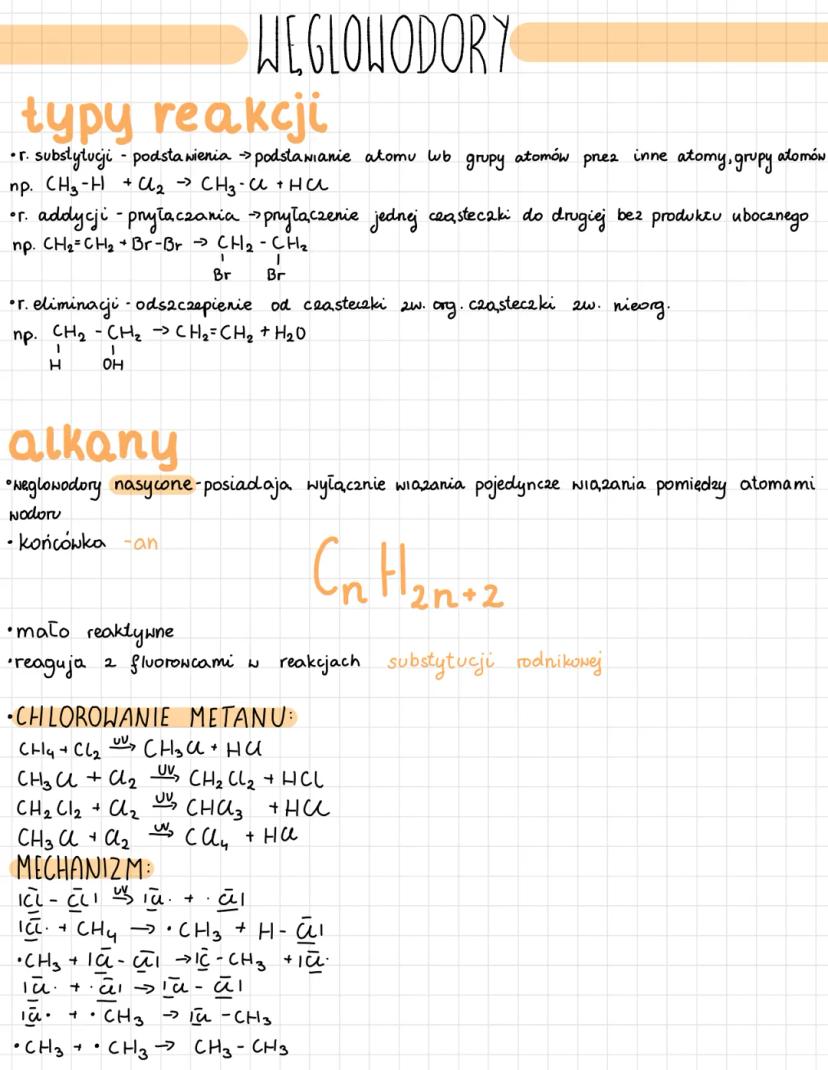 WĘGLOWODORY
typy reakcji
•r. substytucji - podstawienia → podstawianie atomu lub grupy atomów przez inne atomy, grupy atomów
np. CH₃-H + Cl₂ → CH₃-Cl + HCl
•r. addycji - przyłączania → przyłączenie jednej cząsteczki do drugiej bez produktu ubocznego
np. CH₂=CH₂ + Br-Br → CH₂ - CH₂
Br Br
•r. eliminacji - odszczepienie od cząsteczki zw. org. cząsteczki zw. nieorg.
np. CH₂ - CH₂ → CH₂=CH₂ + H₂O
H OH
alkany
•węglowodory nasycone - posiadają wyłącznie wiązania pojedyncze wiązania pomiędzy atomami
wodoru
• końcówka -an
CnH2n+2
•mało reaktywne
•reagują z fluorowcami w reakcjach substytucji rodnikowej
•CHLOROWANIE METANU:
CH₄ + Cl₂ UV→ CH₃Cl + HCl
CH₃Cl + Cl₂ UV→ CH₂Cl₂ + HCl
CH₂Cl₂ + Cl₂ UV→ CHCl₃ + HCl
CH₃Cl + Cl₂ UV→ CCl₄ + HCl
MECHANIZM:
|Cl̄ - Cl̄| UV→ |Cl̄· + ·Cl̄|
|Cl̄· + CH₄ → ·CH₃ + H - Cl̄|
·CH₃ + |Cl̄ - Cl̄| → |C̄ - CH₃ + |Cl̄·
|Cl̄· + ·Cl̄| → |Cl̄ - Cl̄|
|Cl̄· + ·CH₃ → |Cl̄ - CH₃
·CH₃ + ·CH₃ → CH₃ - CH₃